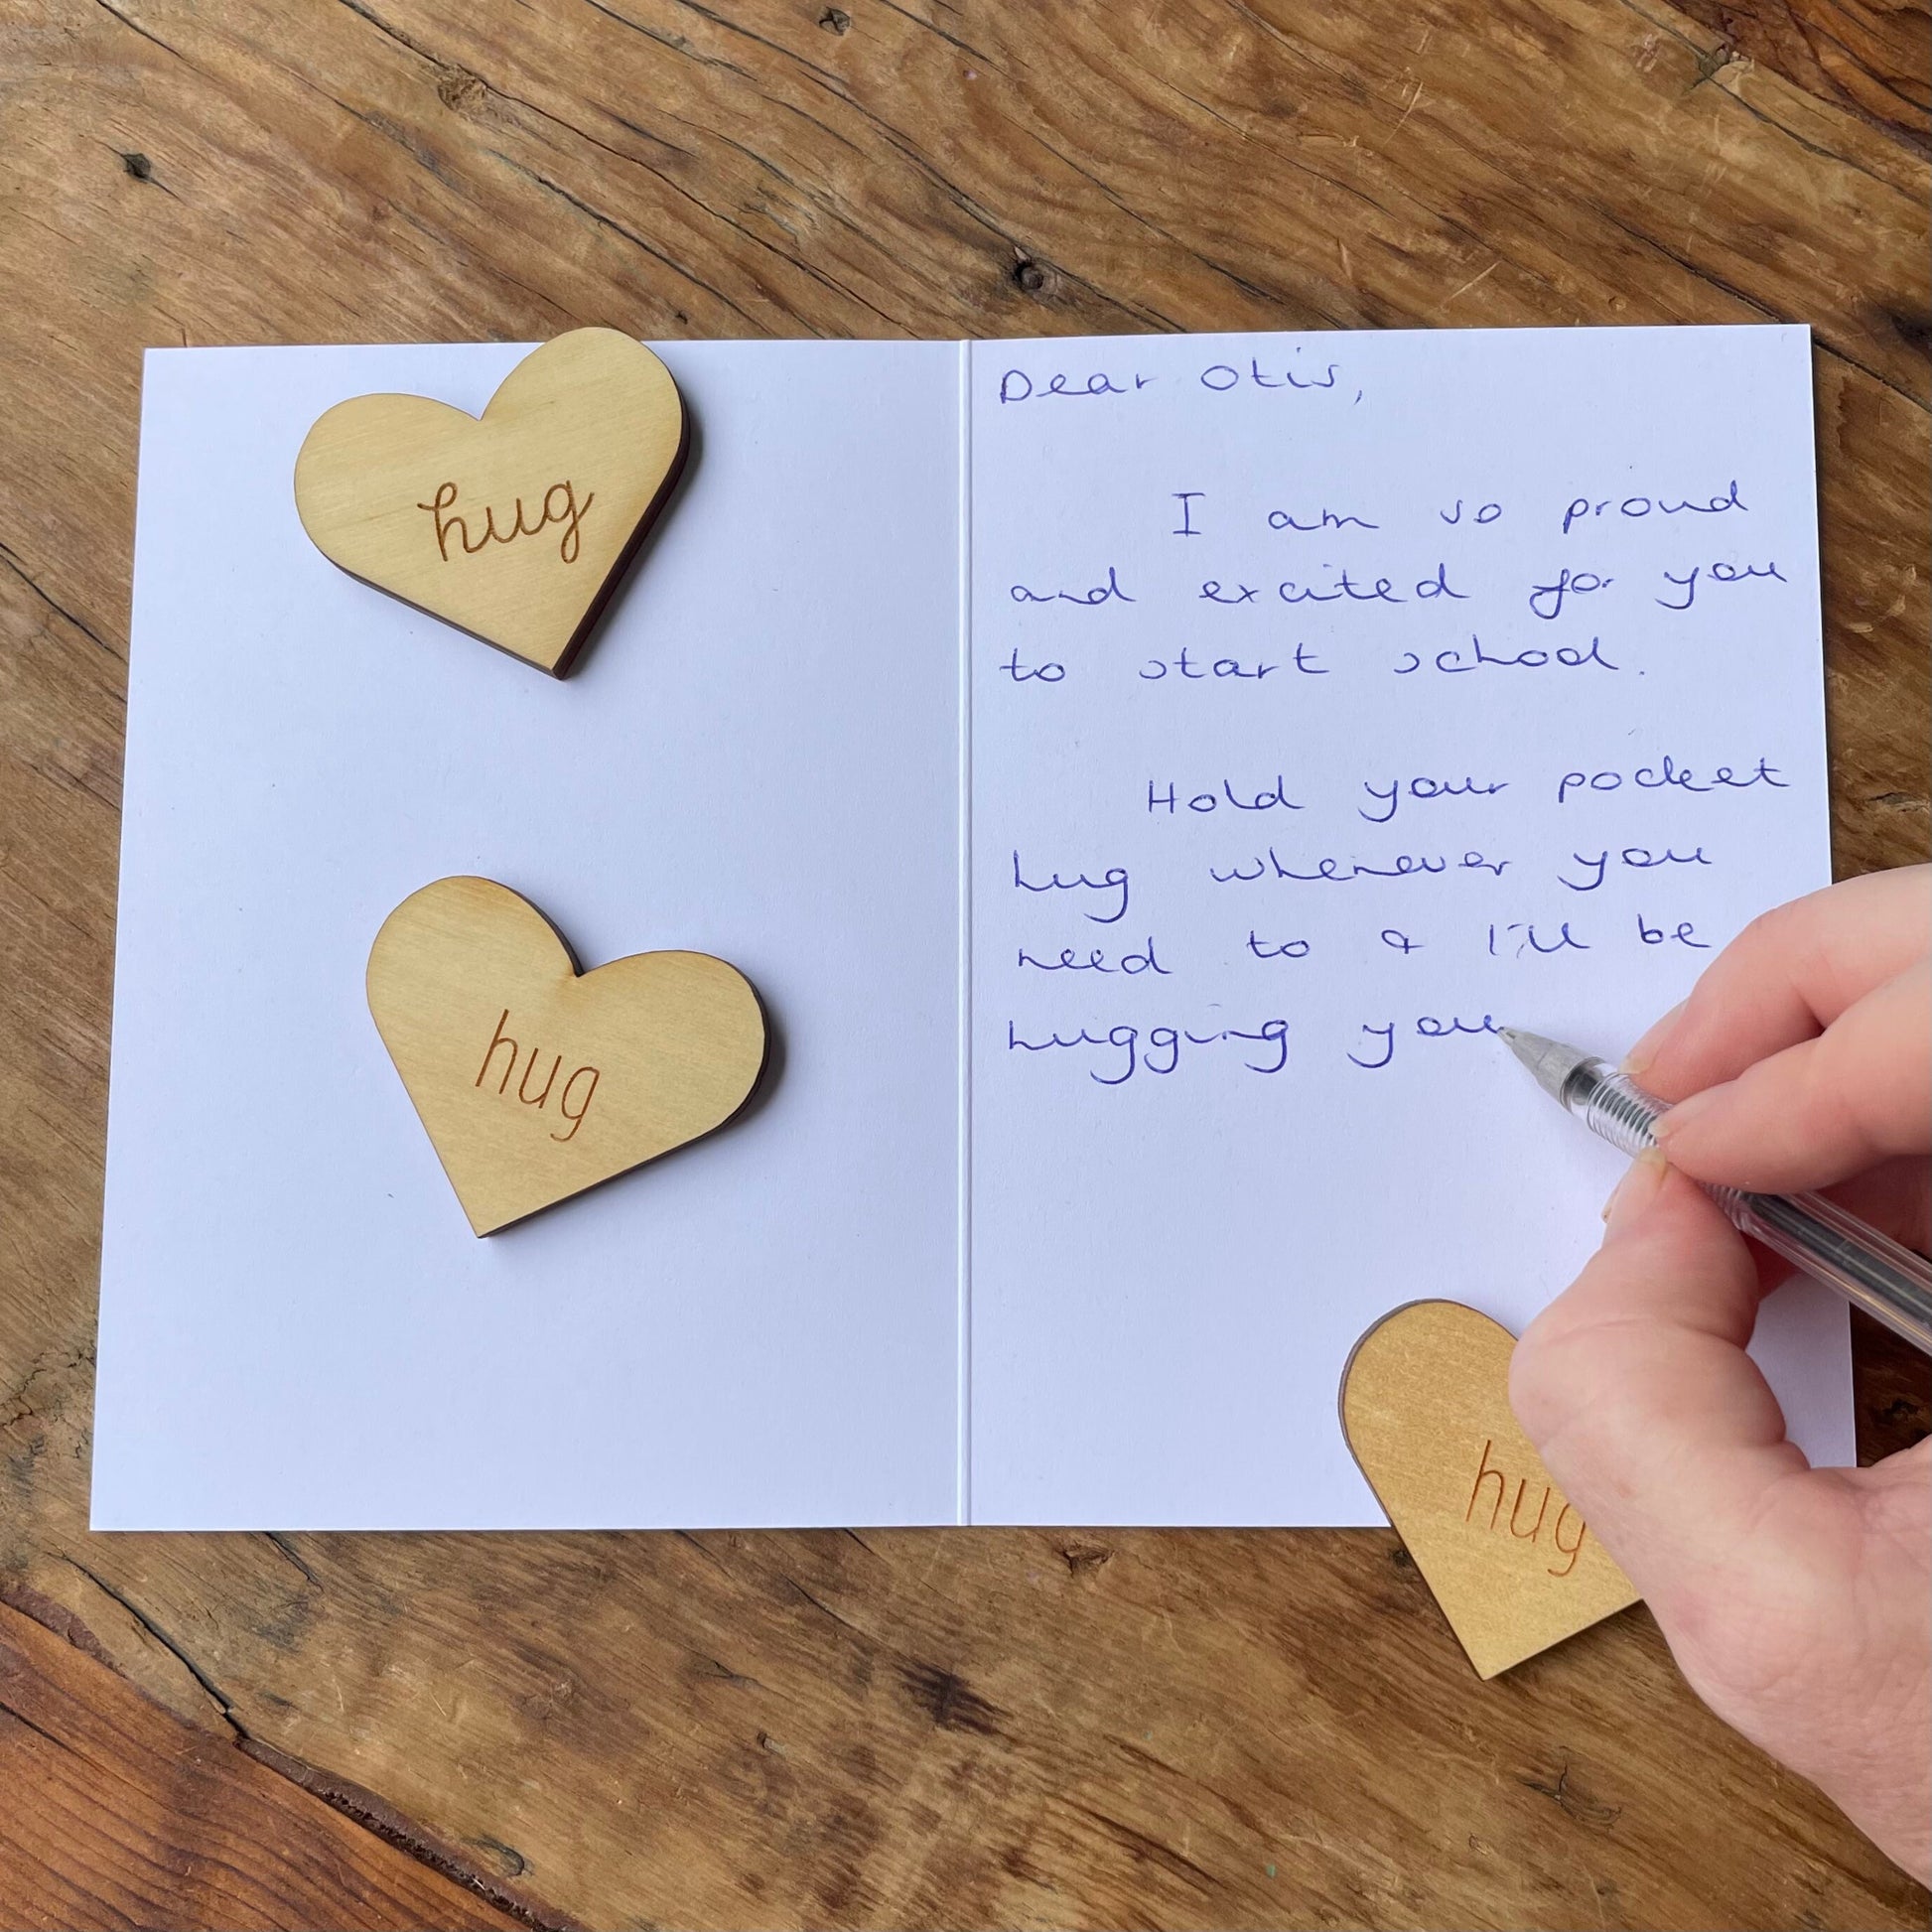 hug
hug
Dear Otis,
I am so proud
and excited for you
to start school.
Hold your pocket
hug whenever you
need to & I'll be
hugging you
hug